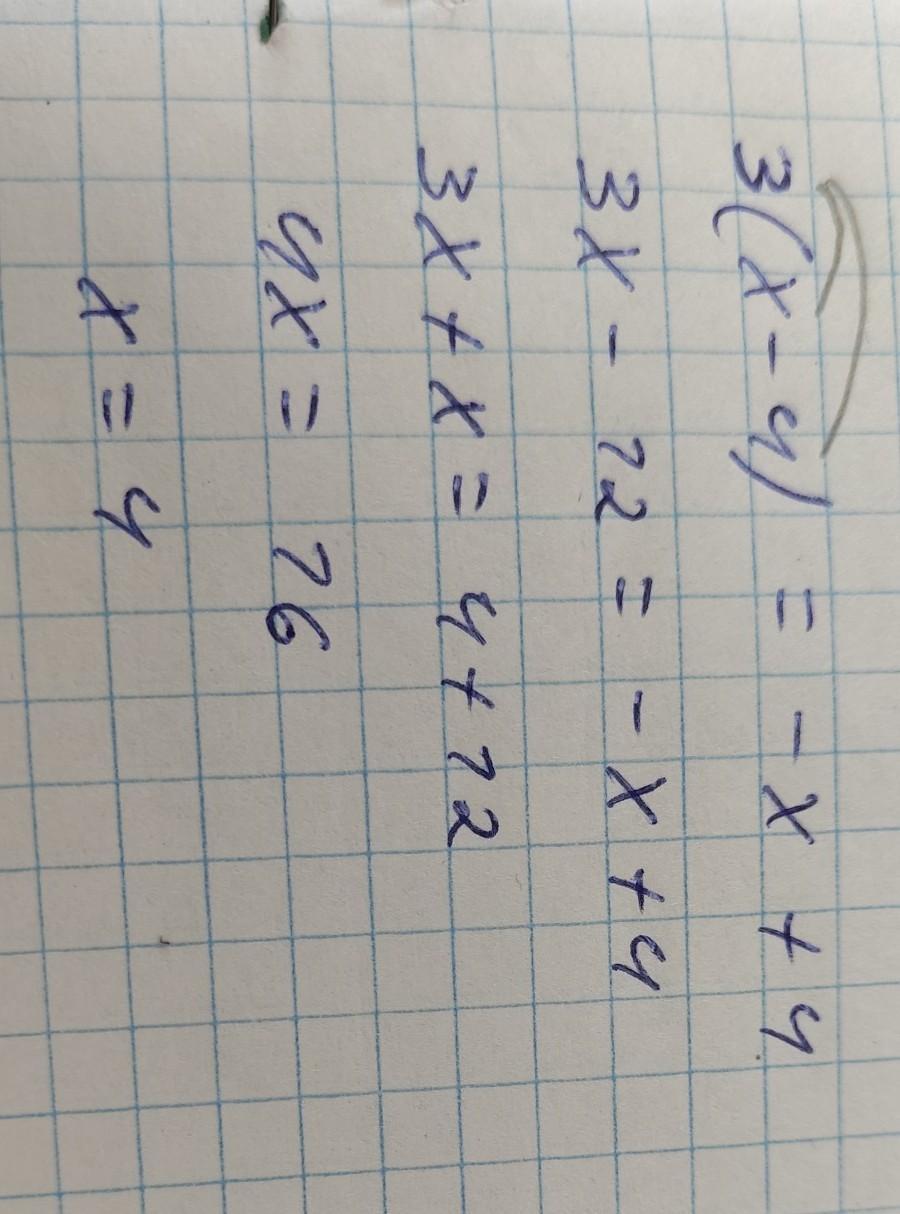 3(x-4) = -x+4
3x-12 = -x+4
3x+x = 4+12
4x = 16
x = 4